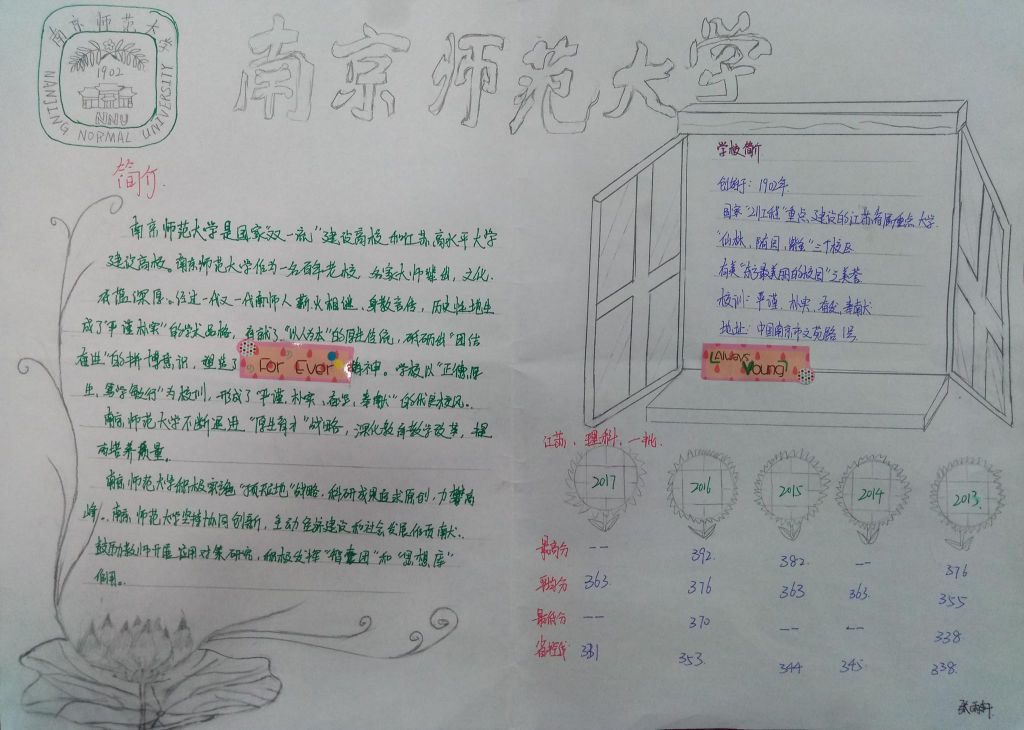 南京师范大学
南京师范大学
1902
NNU
NANJING NORMAL UNIVERSITY
简介.
南京师范大学是国家"双一流"建设高校和江苏高水平大学
建设高校。南京师范大学作为一名百年老校,名家大师辈出,文化
底蕴深厚。经过一代又一代南师人薪火相继、身教言传,历史性地生
成了"严谨朴实"的学术品格,
"以人为本"的厚生传统,
"团结
奋进"的拼搏意识,塑造了
For Ever
精神。学校以"正德厚
生、笃学敏行"为校训,形成了"严谨、朴实、奋进、奉献"的优良校风。
南京师范大学不断运用"厚生育才"战略,深化教育教学改革,提
高培养质量。
南京师范大学积极实施"顶天立地"战略,科研成果追求原创,力攀高
峰。南京师范大学坚持协同创新,主动为
建设和社会发展作贡献。
鼓励教师开展应用对策研究,积极发挥"智囊团"和"思想库"
作用。
学校简介
创办于:1902年
国家"211工程"重点建设的江苏省属重点大学
"仙林,随园,紫金"三个校区
有着"东方最美丽的校园"之美誉
校训:严谨、朴实、奋进、奉献
地址:中国南京市文苑路1号
Always Young!
江苏、理科、一批
2017 2016 2015 2014 2013
最高分 -- 392 382 -- 376
平均分 363 376 363 363 355
最低分 -- 370 -- -- 338
省控线 331 353 344 345 338
张雨轩